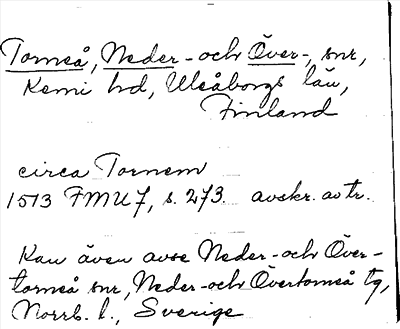 Torneå, Neder- och Över-, snr,
Kemi hd, Uleåborgs län,
Finland
circa Tornem
1513 FMU 7, s. 273. avskr. av tr.
Kan även avse Neder- och Över-
torneå snr, Neder- och Övertorneå tg,
Norrb. l., Sverige